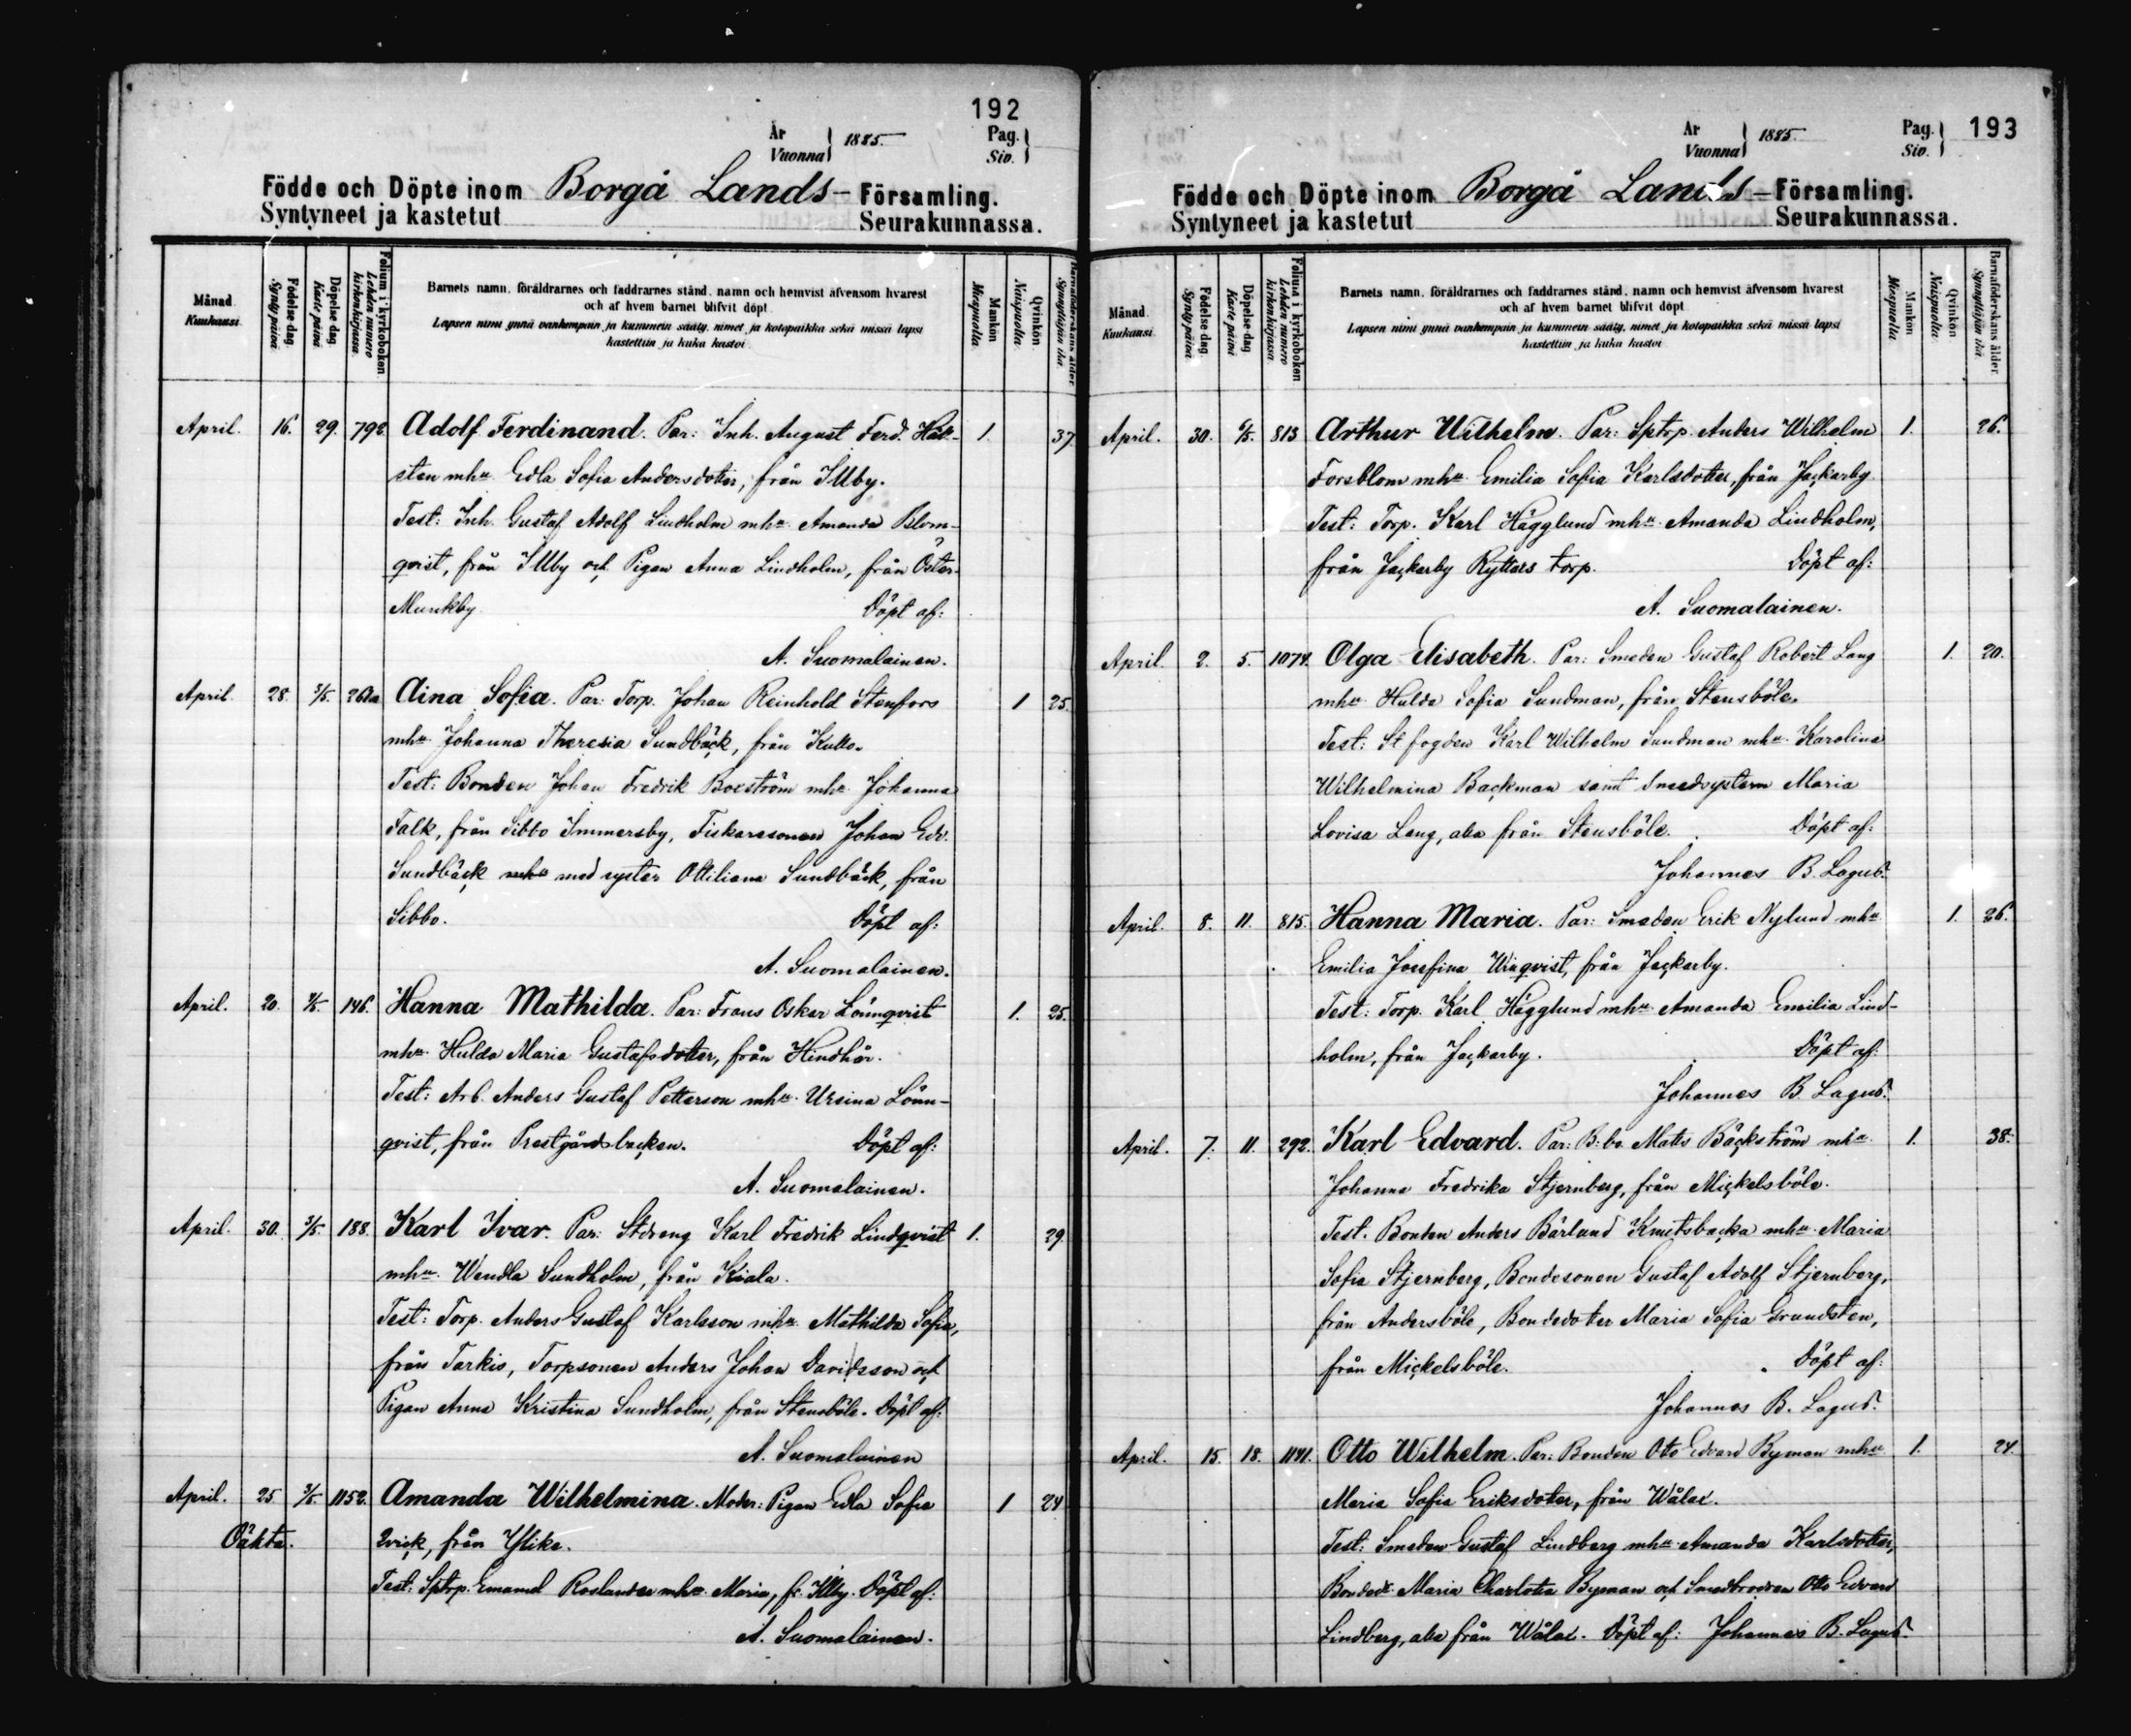 192
År
Vuonna 1885. Pag.
Siv.
Födde och Döpte inom Borgå Lands- Församling.
Syntyneet ja kastetut Seurakunnassa.
Månad. Kuukausi. Födelsedag. Syntypäivä. Döpelsedag. Kastepäivä. Folium i kyrkoboken Lehden numero kirkonkirjassa
Barnets namn, föräldrarnes och faddrarnes stånd, namn och hemvist äfvensom hvarest
och af hvem barnet blifvit döpt.
Lapsen nimi ynnä vanhempain ja kummein sääty, nimet ja kotopaikka sekä missä lapsi
kastettiin ja kuka kastoi.
Mankön Miespuolia. Qvinkön Naispuolia. Barnaföderskans ålder. Synnyttäjän ikä.
April. 16. 29. 792 Adolf Ferdinand. Par: Inh. August Ferd. Häl- 1. 37
sten mhu Edla Sofia Andersdotter, från Illby.
Test: Inh. Gustaf Adolf Lindholm mhu Amanda Blom-
qvist, från Illby och Pigan Anna Lindholm, från Öster-
Munkby. Döpt af:
A. Suomalainen.
April. 28. 3/5. Aina Sofia. Par: Torp. Johan Reinhold Stenfors 1 25.
mhu Johanna Theresia Sundbäck, från Kullo.
Test: Bonden Johan Fredrik Boxström mhu Johanna
Falk, från Sibbo Immersby, Fiskaresonen Johan Edv.
Sundbäck mhu med syster Ottiliana Sundbäck, från
Sibbo. Döpt af:
A. Suomalainen.
April. 20. 3/5. 146. Hanna Mathilda. Par: Frans Oskar Lönnqvist 1. 25.
mhu Hulda Maria Gustafsdotter, från Hindhår.
Test: Arb. Anders Gustaf Petterson mhu Ursina Lönn-
qvist, från Prestgårdsbacken. Döpt af:
A. Suomalainen.
April. 30. 3/5. 188. Karl Ivar. Par: Stdreng Karl Fredrik Lindqvist 1. 29
mhu Wendla Sundholm, från Kiala.
Test: Torp. Anders Gustaf Karlsson mhu Mathilda Sofia,
från Tarkis, Torpsonen Anders Johan Davidsson och
Pigan Anna Kristina Sundholm, från Stensböle. Döpt af:
A. Suomalainen
April. 25 3/5. 1152. Amanda Wilhelmina. Moder: Pigan Edla Sofia 1 24
Oäkta. Qvick, från Ylike.
Test: Sptrp. Emanuel Roslander mhu Maria, fr. Illby. Döpt af:
A. Suomalainen.
År
Vuonna 1885. Pag.
Siv. 193
Födde och Döpte inom Borgå Lands- Församling.
Syntyneet ja kastetut Seurakunnassa.
Månad. Kuukausi. Födelsedag. Syntypäivä. Döpelsedag. Kastepäivä. Folium i kyrkoboken Lehden numero kirkonkirjassa
Barnets namn, föräldrarnes och faddrarnes stånd, namn och hemvist äfvensom hvarest
och af hvem barnet blifvit döpt.
Lapsen nimi ynnä vanhempain ja kummein sääty, nimet ja kotopaikka sekä missä lapsi
kastettiin ja kuka kastoi.
Mankön Miespuolia. Qvinkön Naispuolia. Barnaföderskans ålder. Synnyttäjän ikä.
April. 30. 6/5. 813 Arthur Wilhelm. Par: Sptrp. Anders Wilhelm 1. 26.
Forsblom mhu Emilia Sofia Karlsdotter, från Jackarby
Test: Torp. Karl Hägglund mhu Amanda Lindholm,
från Jackarby Ryttars torp. Döpt af:
A. Suomalainen.
April. 2. 5. 1074. Olga Elisabeth. Par: Smeden Gustaf Robert Lang 1. 20.
mhu Hulda Sofia Sundman, från Stensböle.
Test: St fogden Karl Wilhelm Sundman mhu Karolina
Wilhelmina Backman samt Smedsystern Maria
Lovisa Lang, alla från Stensböle. Döpt af:
Johannes B. Lagus.
April. 8. 11. 815. Hanna Maria. Par: Smeden Erik Nylund mhu 1. 26.
Emilia Josefina Winqvist, från Jackarby.
Test: Torp. Karl Hägglund mhu Amanda Emilia Lind-
holm, från Jackarby. Döpt af:
Johannes B. Lagus.
April. 7. 11. 292. Karl Edvard. Par: B:be Matts Bäckström mhu 1. 38.
Johanna Fredrika Stjernberg, från Mickelsböle.
Test. Bonden Anders Bärlund Knutsbacka mhu Maria
Sofia Stjernberg, Bondesonen Gustaf Adolf Stjernberg,
från Andersböle, Bondedotter Maria Sofia Grundsten,
från Mickelsböle. Döpt af:
Johannes B. Lagus.
April. 15. 18. 1141. Otto Wilhelm. Par: Bonden Otto Edvard Byman mhu 1. 24.
Maria Sofia Eriksdotter, från Wålax.
Test: Smeden Gustaf Lindberg mhu Amanda Karlsdotter,
Bonded: Maria Charlotta Byman och Smedbrodren Otto Edvard
Lindberg, alla från Wålax. Döpt af: Johannes B. Lagus.